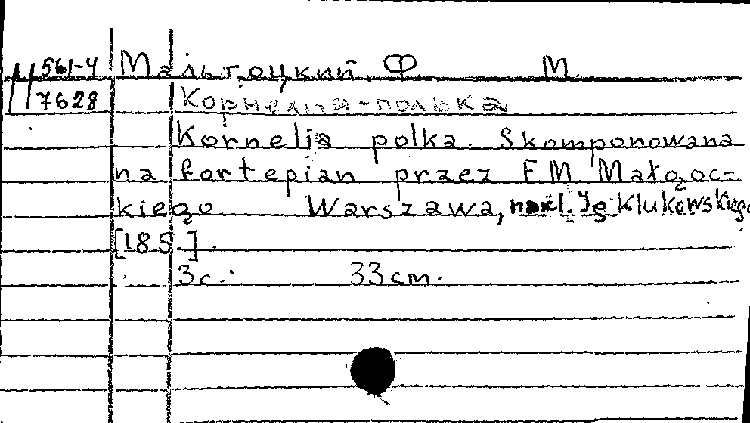 561-4 Мальгоцкий, Ф М.
7628 Корнелия-полька
Kornelia polka. Skomponowana
na fortepian przez F.M. Małgoc-
kiego Warszawa, nakl. Ig. Klukowskiego
[185 ].
3c. 33cm.